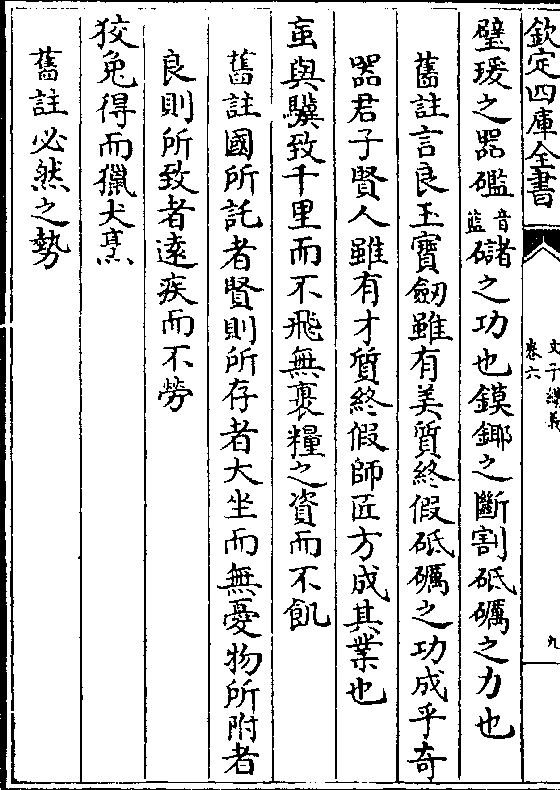 欽定四庫全書
文子纘義
卷六
九
璧瑗之器礛音藍䃴之功也鏌鋣之斷割砥礪之力也
舊註言良玉寶劒雖有美質終假砥礪之功成乎奇
器君子賢人雖有才質終假師匠方成其業也
䖟與驥致千里而不飛無裹糧之資而不飢
舊註國所託者賢則所存者大坐而無憂物所附者
良則所致者遠疾而不勞
狡兔得而獵犬烹
舊註必然之勢